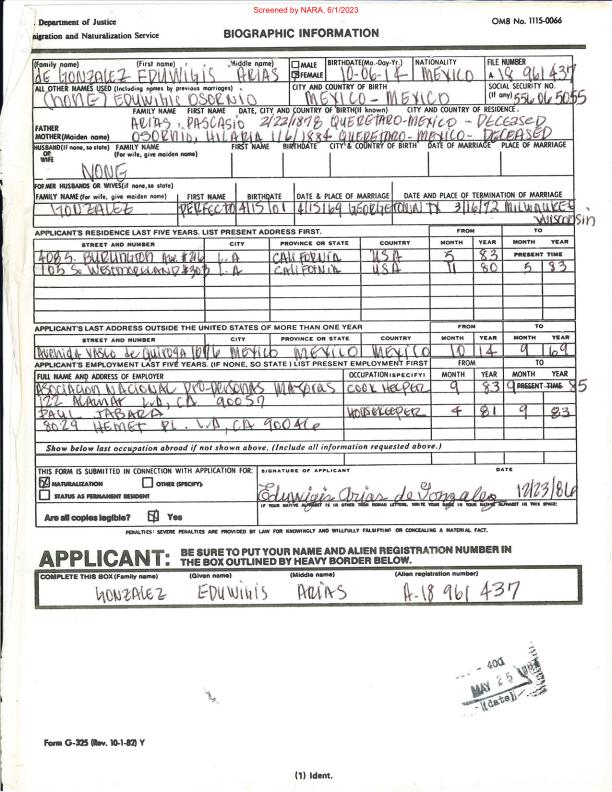 Screened by NARA, 6/1/2023
. Department of Justice
OMB No. 1115-0066
migration and Naturalization Service
BIOGRAPHIC INFORMATION
(Family name) (First name) Middle name) MALE FEMALE BIRTHDATE(Mo.-Day-Yr.) NATIONALITY FILE NUMBER
de GONZALEZ EDUWIGIS ARIAS 10-06-14 MEXICO A 18 961 437
ALL OTHER NAMES USED (Including names by previous marriages) CITY AND COUNTRY OF BIRTH SOCIAL SECURITY NO. (If any)
(NONE) EDUWIGIS OSORNIO MEXICO - MEXICO 556 06 5055
FAMILY NAME FIRST NAME DATE, CITY AND COUNTRY OF BIRTH(If known) CITY AND COUNTRY OF RESIDENCE
FATHER ARIAS, PASCASIO 2/22/1878 QUERETARO-MEXICO - DECEASED
MOTHER(Maiden name) OSORNIO, HILARIA 1/6/1884 QUERETARO-MEXICO- DECEASED
HUSBAND(If none, so state) OR WIFE FAMILY NAME (For wife, give maiden name) FIRST NAME BIRTHDATE CITY & COUNTRY OF BIRTH DATE OF MARRIAGE PLACE OF MARRIAGE
NONE
FORMER HUSBANDS OR WIVES(If none, so state)
FAMILY NAME (For wife, give maiden name) FIRST NAME BIRTHDATE DATE & PLACE OF MARRIAGE DATE AND PLACE OF TERMINATION OF MARRIAGE
GONZALEZ PERFECTO 4/15/01 4/15/69 GEORGETOWN TX 3/16/72 MILWAUKEE
Wisconsin
APPLICANT'S RESIDENCE LAST FIVE YEARS. LIST PRESENT ADDRESS FIRST. FROM TO
STREET AND NUMBER CITY PROVINCE OR STATE COUNTRY MONTH YEAR MONTH YEAR
408 S. BURLINGTON Ave. #216 L.A CALIFORNIA USA 5 83 PRESENT TIME
105 So WESTMORELAND #303 L.A CALIFORNIA USA 11 80 5 83
APPLICANT'S LAST ADDRESS OUTSIDE THE UNITED STATES OF MORE THAN ONE YEAR FROM TO
STREET AND NUMBER CITY PROVINCE OR STATE COUNTRY MONTH YEAR MONTH YEAR
AVENIDA VASCO de QUIROGA MEXICO MEXICO MEXICO 10 14 9 69
APPLICANT'S EMPLOYMENT LAST FIVE YEARS. (IF NONE, SO STATE) LIST PRESENT EMPLOYMENT FIRST FROM TO
FULL NAME AND ADDRESS OF EMPLOYER OCCUPATION(SPECIFY) MONTH YEAR MONTH YEAR
ASOCIACION NACIONAL PRO-PERSONAS MAYORES COOK HELPER 9 83 9 PRESENT TIME 85
L.A, CA 90057
PAUL JABARA HOUSEKEEPER 4 81 9 83
8029 HEMET PL. L.A, CA 90046
Show below last occupation abroad if not shown above. (Include all information requested above.)
THIS FORM IS SUBMITTED IN CONNECTION WITH APPLICATION FOR: SIGNATURE OF APPLICANT DATE
NATURALIZATION OTHER (SPECIFY):
STATUS AS PERMANENT RESIDENT
Eduwigis Arias de Gonzalez 12/23/86
IF YOUR NATIVE ALPHABET IS IN OTHER THAN ROMAN LETTERS, WRITE YOUR NAME IN YOUR NATIVE ALPHABET IN THIS SPACE:
Are all copies legible? Yes
PENALTIES: SEVERE PENALTIES ARE PROVIDED BY LAW FOR KNOWINGLY AND WILLFULLY FALSIFYING OR CONCEALING A MATERIAL FACT.
APPLICANT: BE SURE TO PUT YOUR NAME AND ALIEN REGISTRATION NUMBER IN
THE BOX OUTLINED BY HEAVY BORDER BELOW.
COMPLETE THIS BOX (Family name) (Given name) (Middle name) (Alien registration number)
GONZALEZ EDUWIGIS ARIAS A-18 961 437
MAY 25
(date)
Form G-325 (Rev. 10-1-82) Y
(1) Ident.